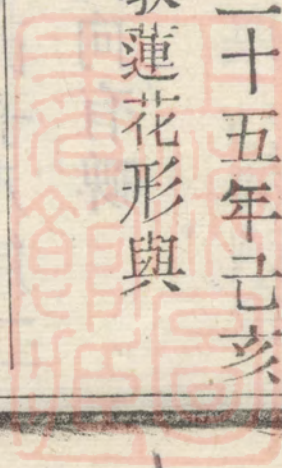 二十五年己亥
蓮花形與